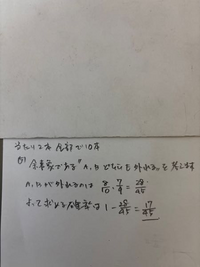 当たり2本 全部で10本
(1) 余事象である"A,Bどちらも外れる"を考えます
A,Bが外れるのは 8/10・7/9 = 28/45
よって求める確率は 1 - 28/45 = 17/45